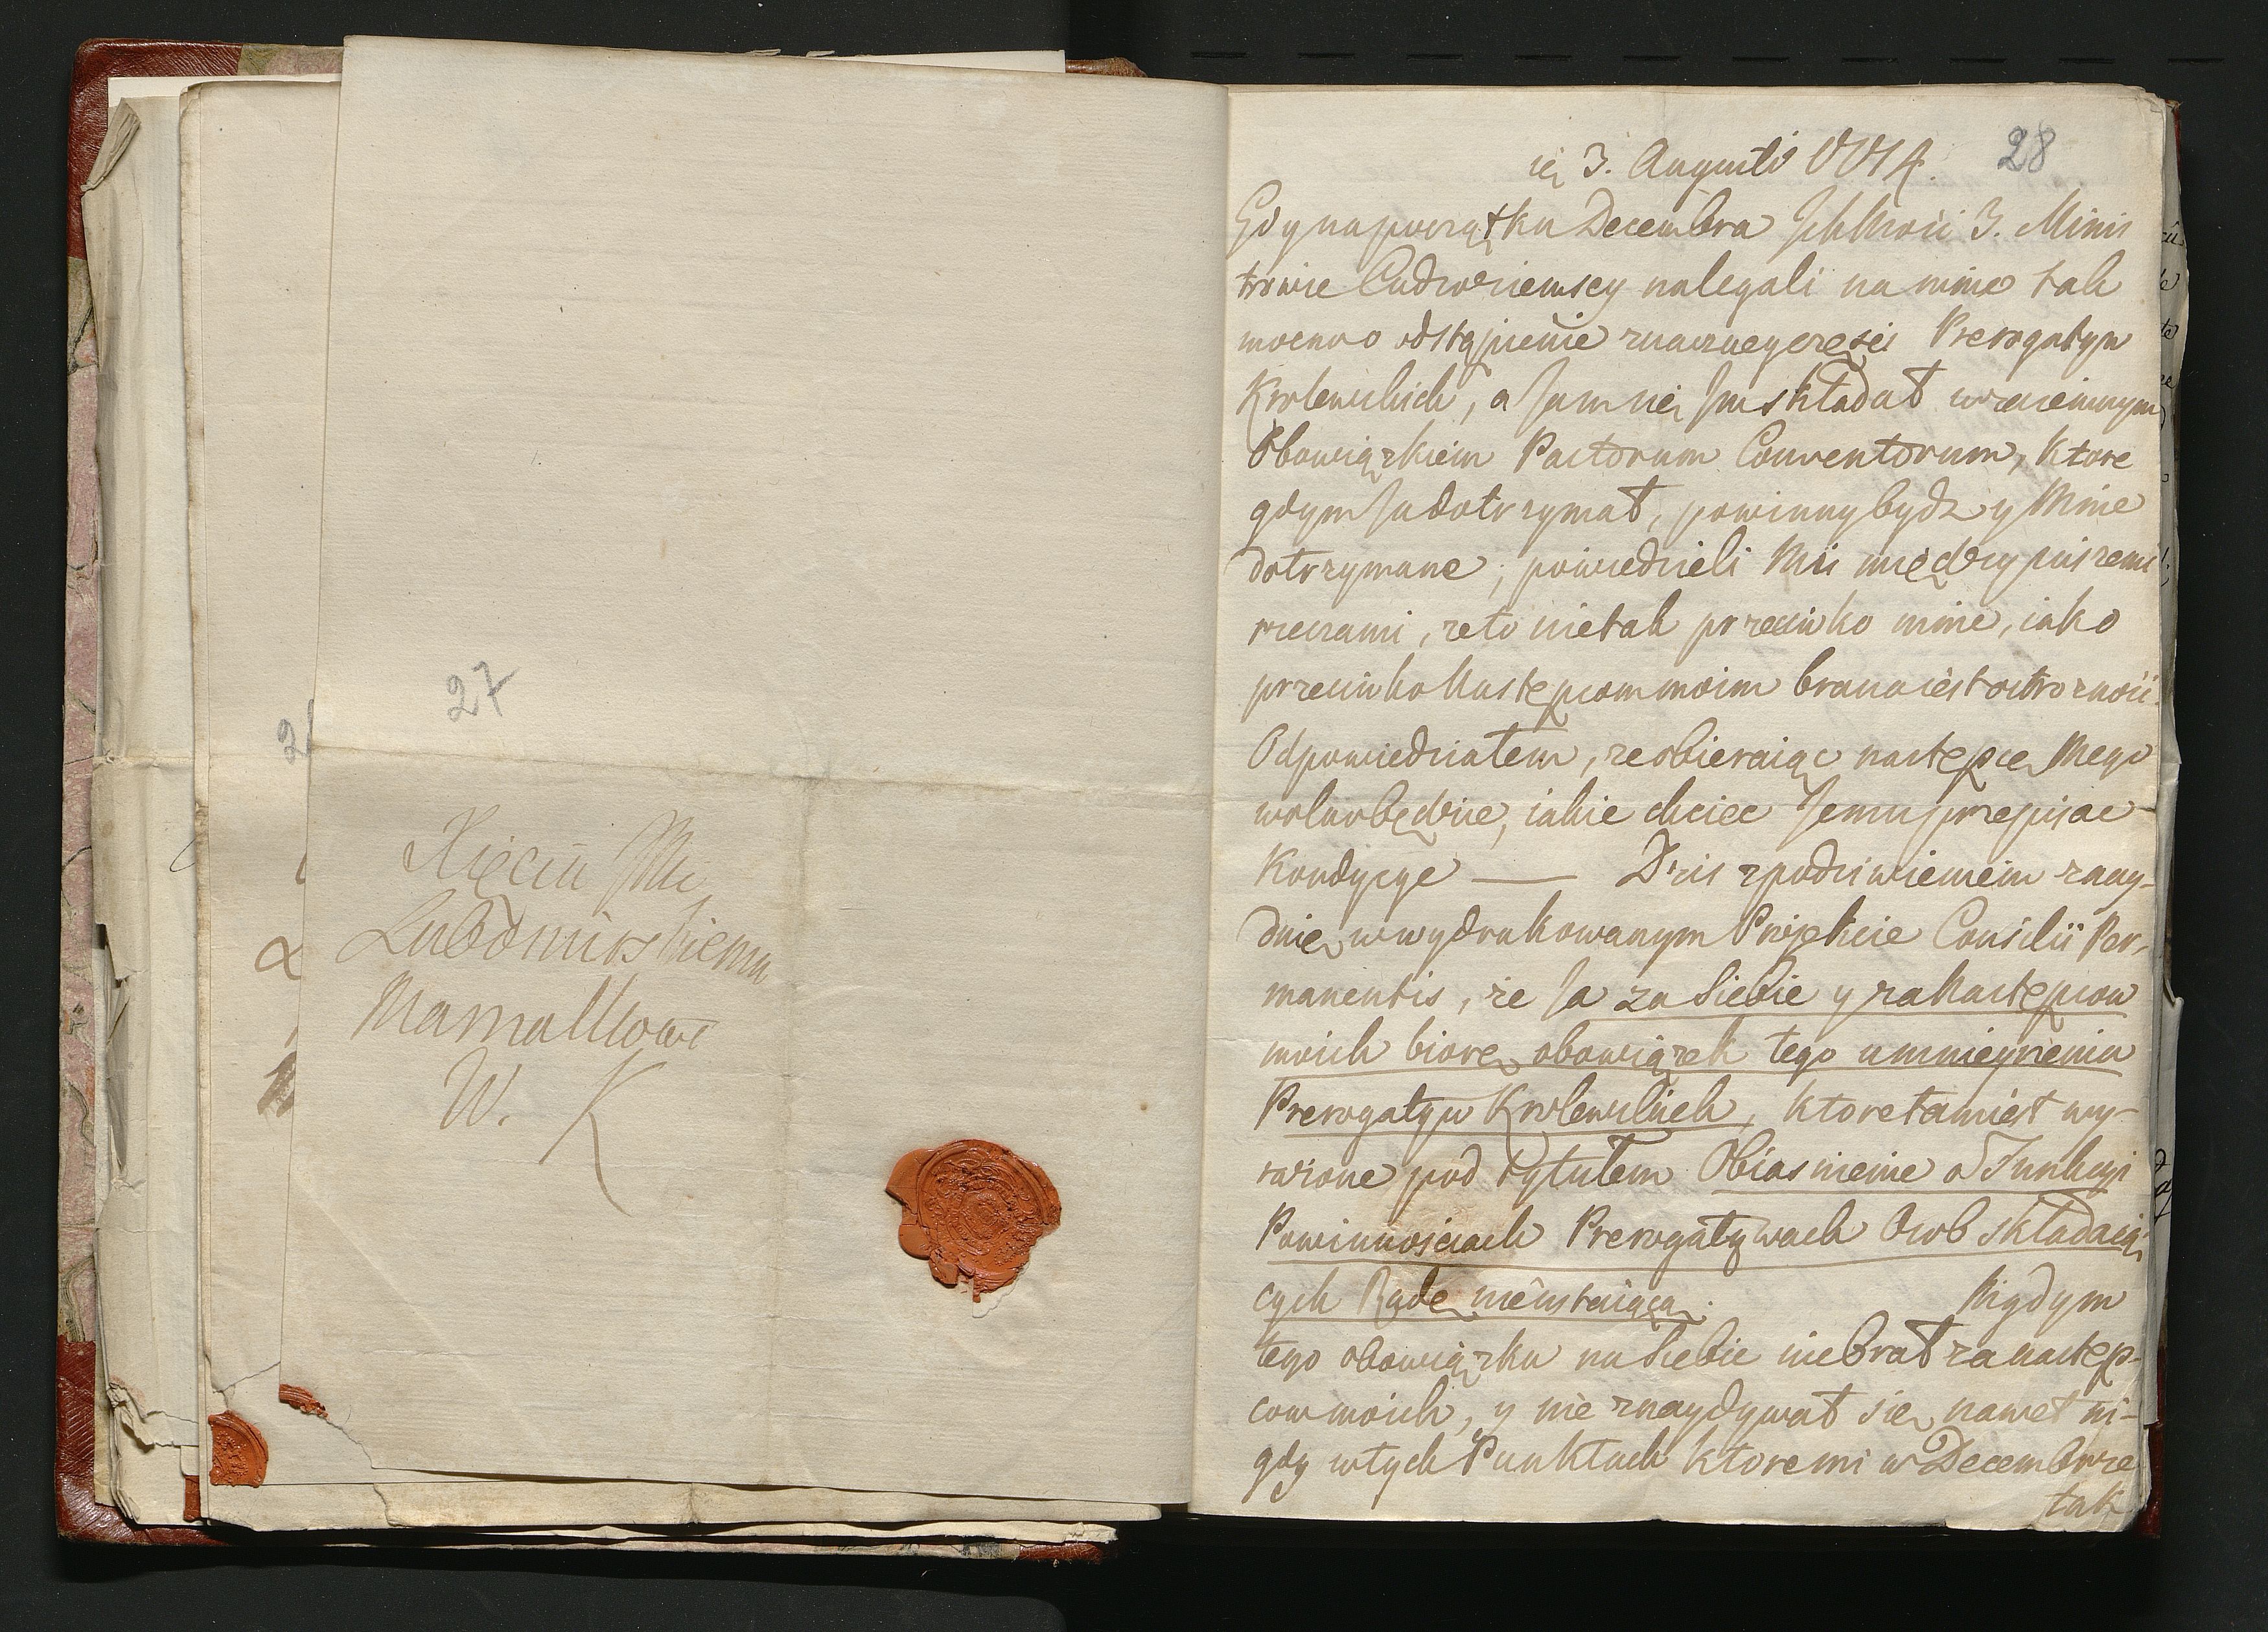 27
Xięciu JMci
Lubomirskiemu
Marszałkowi
W. K
28
3. Augusti 1774.
Gdy na początku Decembra Ich Mości 3. Minis
trowie Cudzoziemscy nalegali na mnie tak
mocno o odstąpienie znaczney części Prerogatyw
Krolewskich, a Jam się Im składał wzaiemnym
Obowiązkiem Pactorum Conventorum, ktore
gdym Ja dotrzymał, powinny bydz y Mnie
dotrzymane; powiedzieli Mi między inszemi
rzeczami, ze to nie tak przeciwko mnie, iako
przeciwko Następcom moim brana iest ostroznosć.
Odpowiedziałem, ze obieraiąc następcę Mego
wolno będzie, iakie chciec Jemu przepisac
Kondycye —— Dzis z podziwieniem znay-
duię w wydrukowanym Projekcie Consilii Per-
manentis, ze Ja za Siebie y za Następcow
moich biorę obowiązek tego umnieyszenia
Prerogatyw Krolewskich, ktore tam iest wy-
rażone pod tytułem Obiasnienie o Funkcyi
Powinnosciach Prerogatywach Osob składaią-
cych Radę nieustaiącą. Nigdym
tego obowiązku na Siebie nie brał za następ-
cow moich, y nie znaydywał się nawet ni-
gdy w tych Punktach ktoremi w Decembrze
tak